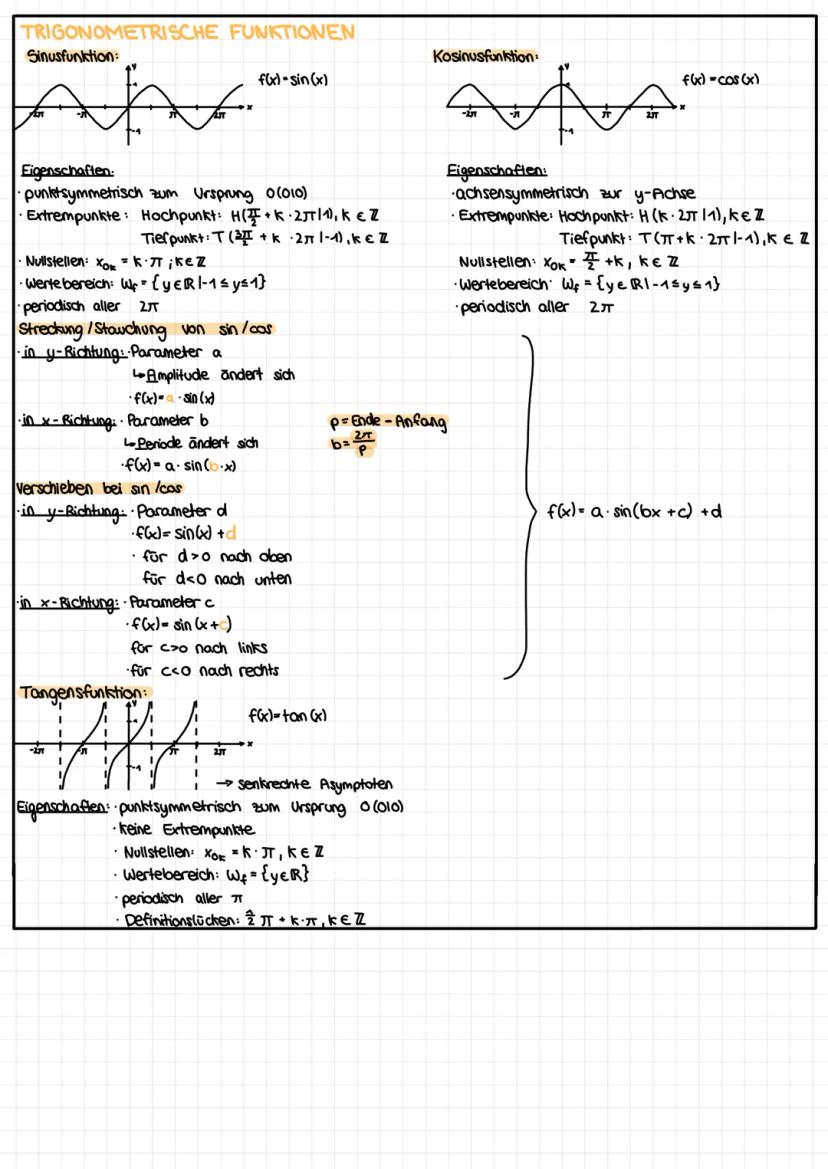 TRIGONOMETRISCHE FUNKTIONEN
Sinusfunktion:
y
1
-2π -π π 2π x
-1
f(x)=sin(x)
Eigenschaften:
· punktsymmetrisch zum Ursprung O(0|0)
· Extrempunkte: Hochpunkt: H(π/2 + k · 2π|1), k ∈ ℤ
Tiefpunkt: T(3π/2 + k · 2π|-1), k ∈ ℤ
· Nullstellen: x₀ₖ = k · π ; k ∈ ℤ
· Wertebereich: Wf = {y ∈ ℝ|-1 ≤ y ≤ 1}
· periodisch aller 2π
Kosinusfunktion:
y
1
-2π -π π 2π x
-1
f(x)=cos(x)
Eigenschaften:
· achsensymmetrisch zur y-Achse
· Extrempunkte: Hochpunkt: H(k · 2π|1), k ∈ ℤ
Tiefpunkt: T(π+k · 2π|-1), k ∈ ℤ
Nullstellen: x₀ₖ = π/2 + k, k ∈ ℤ
· Wertebereich: Wf = {y ∈ ℝ|-1 ≤ y ≤ 1}
· periodisch aller 2π
Streckung/Stauchung von sin/cos
· in y-Richtung: · Parameter a
↳ Amplitude ändert sich
· f(x)= a · sin(x)
· in x-Richtung: · Parameter b
↳ Periode ändert sich
· f(x)= a · sin(b·x)
p = Ende - Anfang
b = 2π/p
Verschieben bei sin/cos
· in y-Richtung: · Parameter d
· f(x)= sin(x) + d
· für d>0 nach oben
für d<0 nach unten
· in x-Richtung: · Parameter c
· f(x)= sin(x+c)
für c>0 nach links
· für c<0 nach rechts
f(x)= a · sin(bx + c) + d
Tangensfunktion:
y
1
-2π -π π 2π x
-1
f(x)=tan(x)
→ senkrechte Asymptoten
Eigenschaften: · punktsymmetrisch zum Ursprung O(0|0)
· keine Extrempunkte
· Nullstellen: x₀ₖ = k · π, k ∈ ℤ
· Wertebereich: Wf = {y ∈ ℝ}
· periodisch aller π
· Definitionslücken: 1/2 π + k · π, k ∈ ℤ